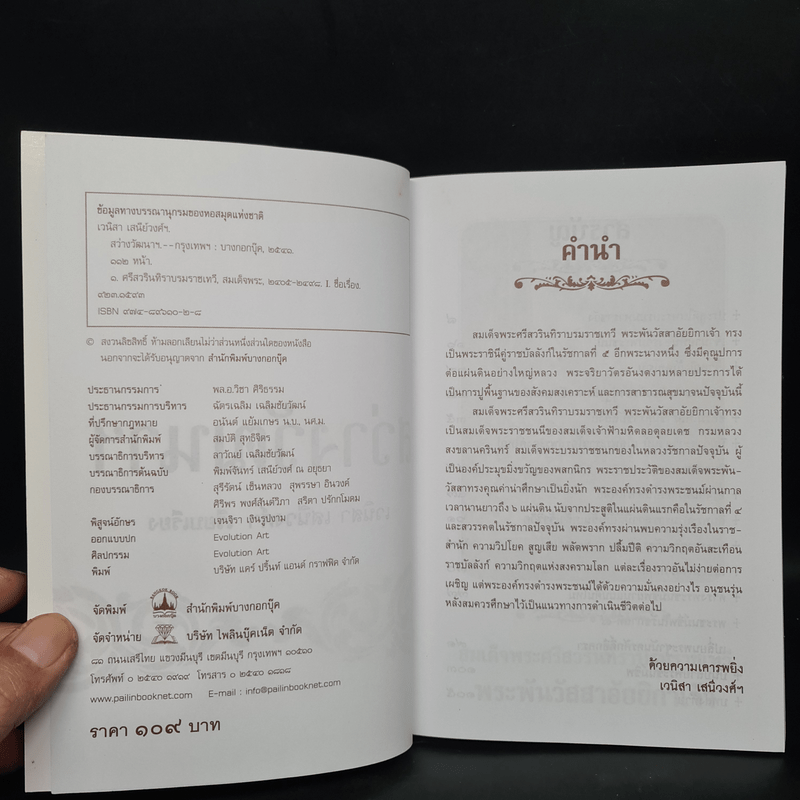 ข้อมูลทางบรรณานุกรมของหอสมุดแห่งชาติ
เวนิสา เสนีย์วงศ์ฯ.
สว่างวัฒนาฯ.--กรุงเทพฯ : บางกอกบุ๊ค, ๒๕๔๑.
๑๑๒ หน้า.
๑. ศรีสวรินทิราบรมราชเทวี, สมเด็จพระ, ๒๔๐๕-๒๔๙๘. I. ชื่อเรื่อง.
๙๒๓.๑๕๙๓
ISBN ๙๗๔-๘๙๖๑๐-๒-๘
© สงวนลิขสิทธิ์ ห้ามลอกเลียนไม่ว่าส่วนหนึ่งส่วนใดของหนังสือ
นอกจากจะได้รับอนุญาตจาก สำนักพิมพ์บางกอกบุ๊ค
ประธานกรรมการ พล.อ.วิชา ศิริธรรม
ประธานกรรมการบริหาร ฉัตรเฉลิม เฉลิมชัยวัฒน์
ที่ปรึกษากฎหมาย อนันต์ แย้มเกษร น.บ. น.ศ.ม.
ผู้จัดการสำนักพิมพ์ สมบัติ สุทธิจิตร
บรรณาธิการบริหาร ลาวัณย์ เฉลิมชัยวัฒน์
บรรณาธิการต้นฉบับ พิมพ์จันทร์ เสนีย์วงศ์ ณ อยุธยา
กองบรรณาธิการ สุรีรัตน์ เซ็นหลวง สุพรรษา อินวงค์
ศิริพร พงศ์สันต์วิภา สริตา ปรักกโมดม
พิสูจน์อักษร เจนจิรา เงินรูปงาม
ออกแบบปก Evolution Art
ศิลปกรรม Evolution Art
พิมพ์ บริษัท แคร์ ปริ้นท์ แอนด์ กราฟฟิค จำกัด
จัดพิมพ์ สำนักพิมพ์บางกอกบุ๊ค
จัดจำหน่าย บริษัท ไพลินบุ๊คเน็ต จำกัด
๘๑ ถนนเสรีไทย แขวงมีนบุรี เขตมีนบุรี กรุงเทพฯ ๑๐๕๑๐
โทรศัพท์ ๐ ๒๕๔๐ ๑๙๑๙ โทรสาร ๐ ๒๕๔๐ ๑๘๑๘
www.pailinbooknet.com E-mail : info@pailinbooknet.com
ราคา ๑๐๙ บาท
คำนำ
สมเด็จพระศรีสวรินทิราบรมราชเทวี พระพันวัสสาอัยยิกาเจ้า ทรง
เป็นพระราชินีคู่ราชบัลลังก์ในรัชกาลที่ ๕ อีกพระนางหนึ่ง ซึ่งมีคุณูปการ
ต่อแผ่นดินอย่างใหญ่หลวง พระจริยาวัตรอันงดงามหลายประการได้
เป็นการปูพื้นฐานของสังคมสงเคราะห์ และการสาธารณสุขมาจนปัจจุบันนี้
สมเด็จพระศรีสวรินทิราบรมราชเทวี พระพันวัสสาอัยยิกาเจ้าทรง
เป็นสมเด็จพระราชชนนีของสมเด็จเจ้าฟ้ามหิดลอดุลยเดช กรมหลวง
สงขลานครินทร์ สมเด็จพระบรมราชชนกของในหลวงรัชกาลปัจจุบัน ผู้
เป็นองค์ประมุขมิ่งขวัญของพสกนิกร พระราชประวัติของสมเด็จพระพัน-
วัสสาทรงคุณค่าน่าศึกษาเป็นยิ่งนัก พระองค์ทรงดำรงพระชนม์ผ่านกาล
เวลานานยาวถึง ๖ แผ่นดิน นับจากประสูติในแผ่นดินแรกคือในรัชกาลที่ ๔
และสวรรคตในรัชกาลปัจจุบัน พระองค์ทรงผ่านพบความรุ่งเรืองในราช-
สำนัก ความวิปโยค สูญเสีย พลัดพราก ปลื้มปีติ ความวิกฤตอันสะเทือน
ราชบัลลังก์ ความวิกฤตแห่งสงครามโลก แต่ละเรื่องราวอันไม่ง่ายต่อการ
เผชิญ แต่พระองค์ทรงดำรงพระชนม์ได้ด้วยความมั่นคงอย่างไร อนุชนรุ่น
หลังสมควรศึกษาไว้เป็นแนวทางการดำเนินชีวิตต่อไป
ด้วยความเคารพยิ่ง
เวนิสา เสนีวงศ์ฯ